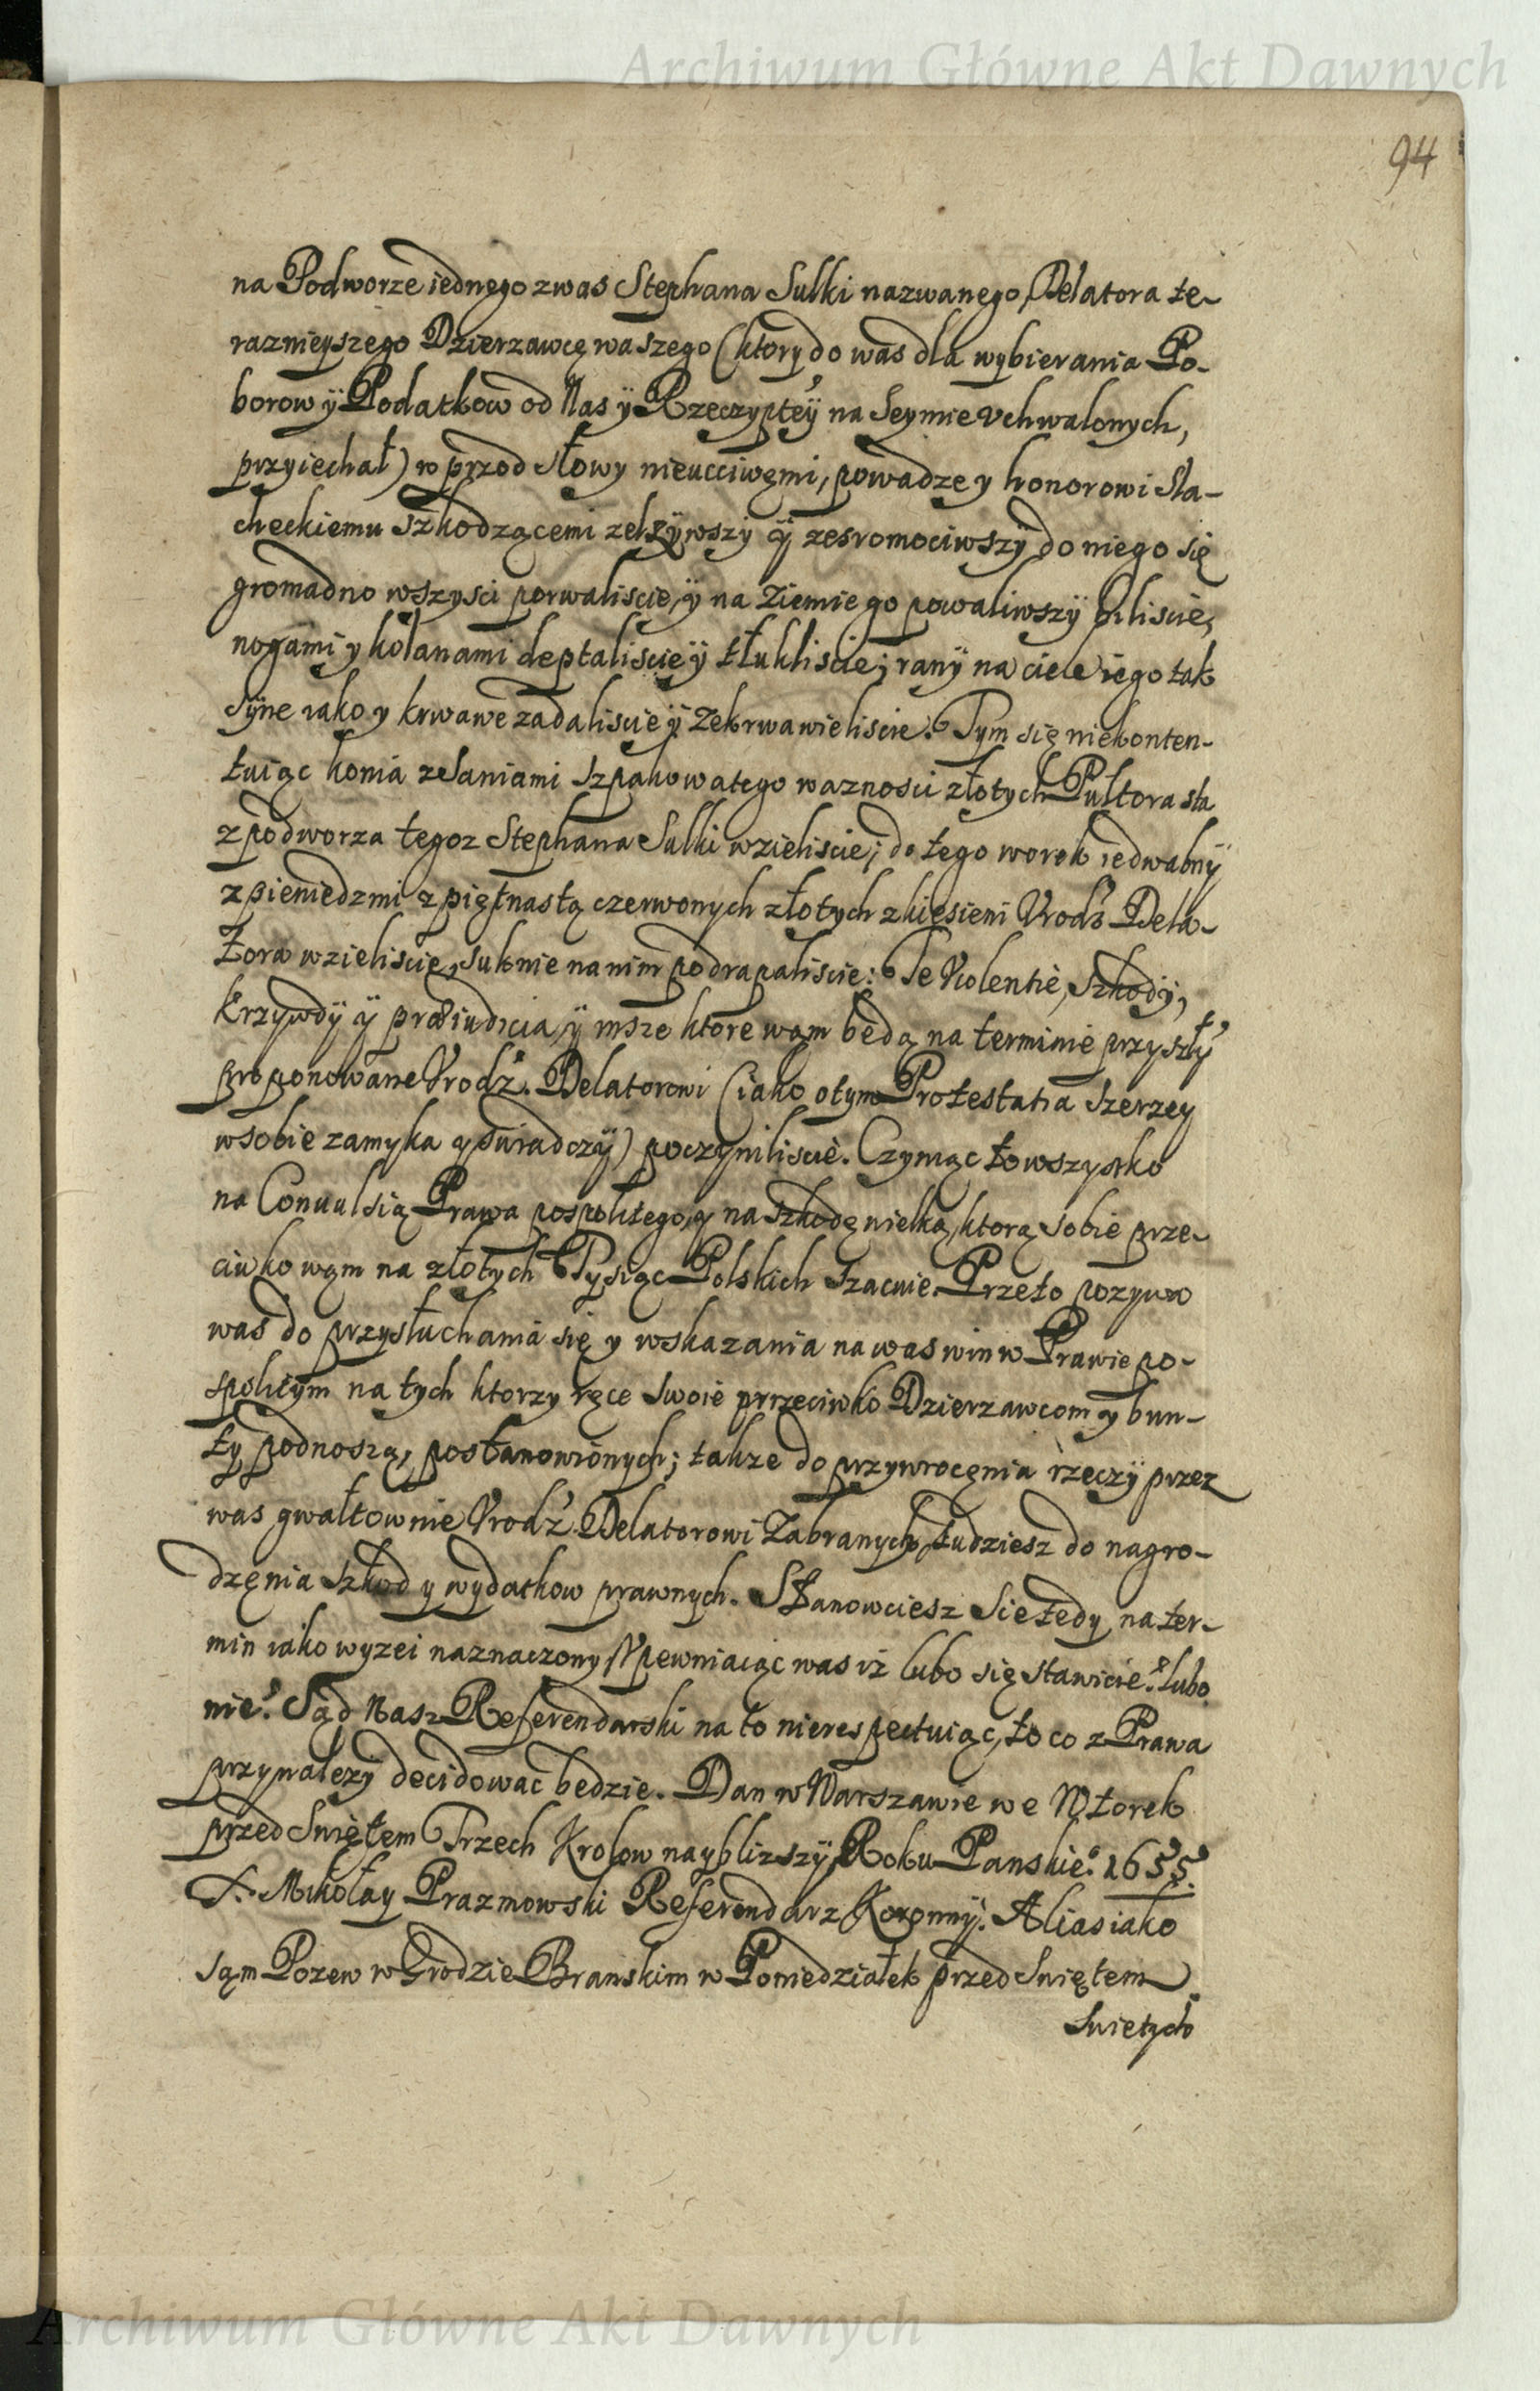 Archiwum Główne Akt Dawnych
94
na Podworze iednego z was Stephana Sulki nazwanego, Delatora te-
raznieyszego Dzierzawcę waszego (ktory do was dla wybierania Po-
borow ÿ Podatkow od Nas ÿ Rzeczyptey na Seymie vchwalonych,
przyiechał) w przod słowy nieucciwęmi, powadze y honorowi Sla-
checkiemu szkodzącemi zelzÿwszy ÿ zesromociwszÿ do niego się
gromadno wszysci porwaliscie, ÿ na Ziemie go powaliwszÿ biliscie,
nogami y kolanami deptaliscie ÿ tłukliscie; ranÿ na ciele iego tak
sÿne iako y krwawe zadaliscie ÿ zekrwawieliscie. Tym się niekonten-
tuiąc konia zelaniami szpakowatego waznosci złotych Pułtora sta
z podworza tegoz Stephana Sulki wzieliscie; do tego worek iedwabnÿ
z pieniedzmi z piętnastą czerwonych złotych z kieszieni Vrodz. Dela-
tora wzieliscie, suknie na nim podrapaliscie: Te Violentie, Szkody,
krzywdÿ ÿ præiudicia ÿ insze ktore wąm będą na terminie przyszłÿ
proponowane Vrodz. Delatorowi (iako o tym Protestatia szerzey
w sobie zamyka y swiadczÿ) poczyniliscie. Czyniąc to wszystko
na Conuulsią Prawa pospolitego, y na szkodę wielką, ktorą sobie prze-
ciwko wąm na złotych Tysiąc Polskich szacuie. Przeto pozywa
was do przysłuchania się y wskazania na was win w Prawie po-
spolitym na tych ktorzy ręce swoie przeciwko Dzierzawcom y bun-
ty podnoszą, postanowionych; takze do przywrocęnia rzeczÿ przez
was gwałtownie Vrodz. Delatorowi Zabranych, tudziesz do nagro-
dzęnia szkod y wydatkow prawnych. Stanowciesz sie tedy na ter-
min iako wyzei naznaczony Vpewniaiąc was iż lubo się stawicie lubo
nie. Sąd Nasz Referendarski na to nierespectuiąc, to co z Prawa
przynalezy decidowac bedzie. Dan w Warszawie we Wtorek
przed Swiętem Trzech Krolow nayblizszÿ, Roku Panskie. 1655.
X. Mikołay Prazmowski Referendarz Koronnÿ. Alias iako
sąm Pozew w Grodzie Branskim w Poniedziałek przed Swiętem
Swietych
Archiwum Główne Akt Dawnych